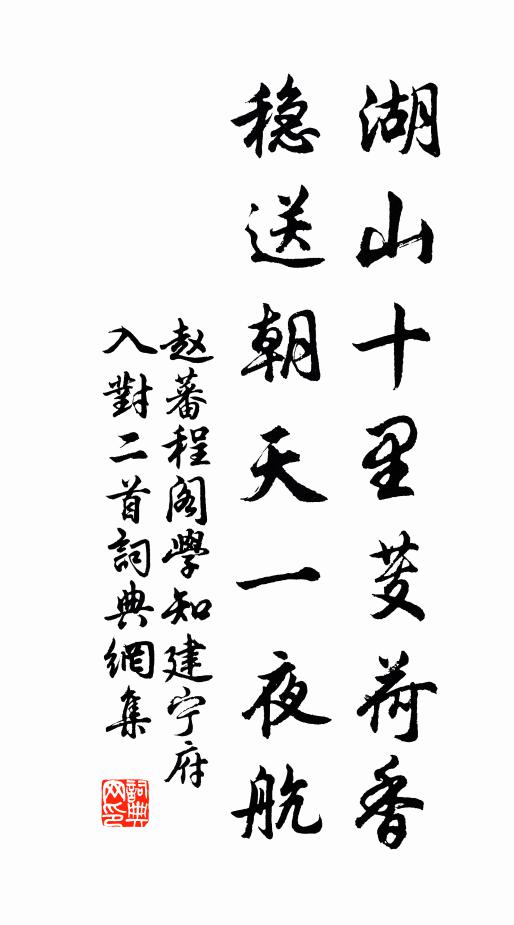 湖山十里芰荷香
稳送朝天一夜航
赵蕃程阁學知建宁府
入對二首詞典網集
詞典網印